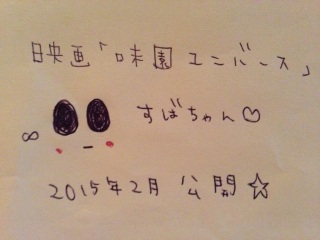 映画「味園ユニバース」
すばちゃん♡
∞
2015年2月 公開☆